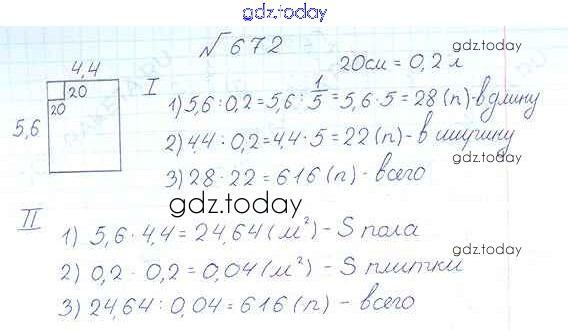 gdz.today
№ 672
20см = 0,2 м
gdz.today
4,4
20
20
5,6
I
1) 5,6 : 0,2 = 5,6 : 1/5 = 5,6 · 5 = 28 (п) - в длину
2) 4,4 : 0,2 = 4,4 · 5 = 22 (п) - в ширину
3) 28 · 22 = 616 (п) - всего
gdz.today
II
1) 5,6 · 4,4 = 24,64 (м²) - S пола
gdz.today
2) 0,2 · 0,2 = 0,04 (м²) - S плитки
3) 24,64 : 0,04 = 616 (п) - всего